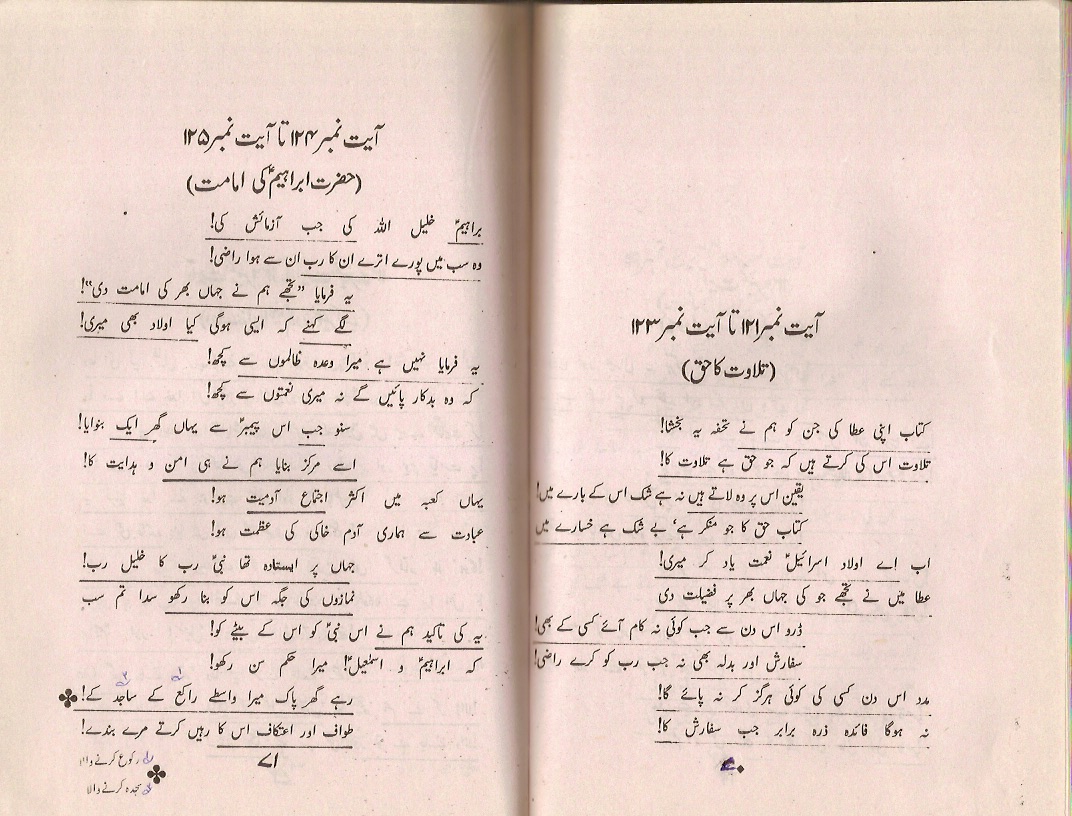 آیت نمبر۱۲۱ تا آیت نمبر۱۲۳
(تلاوت کا حق)
کتاب اپنی عطا کی جن کو ہم نے تحفہ یہ بخشا!
تلاوت اس کی کرتے ہیں کہ جو حق ہے تلاوت کا!
یقین اس پر وہ لاتے ہیں نہ ہے شک اس کے بارے میں!
کتاب حق کا جو منکر ہے، بے شک ہے خسارے میں
اب اے اولاد اسرائیلؑ نعمت یاد کر میری!
عطا میں نے تجھے جو کی جہاں بھر پر فضیلت دی
ڈرو اس دن سے جب کوئی نہ کام آئے کسی کے بھی!
سفارش اور بدلہ بھی نہ جب رب کو کرے راضی!
مدد اس دن کسی کی کوئی ہرگز کر نہ پائے گا!
نہ ہوگا فائدہ ذرہ برابر جب سفارش کا!
۷۰
آیت نمبر۱۲۴ تا آیت نمبر۱۲۵
(حضرت ابراہیمؑ کی امامت)
براہیمؑ خلیل اللہ کی جب آزمائش کی!
وہ سب میں پورے اترے ان کا رب ان سے ہوا راضی!
یہ فرمایا "تجھے ہم نے جہاں بھر کی امامت دی"!
لگے کہنے کہ ایسی ہوگی کیا اولاد بھی میری!
یہ فرمایا نہیں ہے میرا وعدہ ظالموں سے کچھ!
کہ وہ بدکار پائیں گے نہ میری نعمتوں سے کچھ!
سنو جب اس پیمبرؑ سے یہاں گھر ایک بنوایا!
اسے مرکز بنایا ہم نے ہی امن و ہدایت کا!
یہاں کعبہ میں اکثر اجتماع آدمیت ہو!
عبادت سے ہماری آدم خاکی کی عظمت ہو!
جہاں پر ایستادہ تھا نبیؑ رب کا خلیل رب!
نمازوں کی جگہ اس کو بنا رکھو سدا تم سب
یہ کی تاکید ہم نے اس نبیؑ کو اس کے بیٹے کو!
کہ ابراہیمؑ و اسمٰعیلؑ! میرا حکم سن رکھو!
رہے گھر پاک میرا واسطے راکع۱ کے ساجد۲ کے!
طواف اور اعتکاف اس کا رہیں کرتے مرے بندے!
۱ رکوع کرنے والا
۲ سجدہ کرنے والا
۷۱